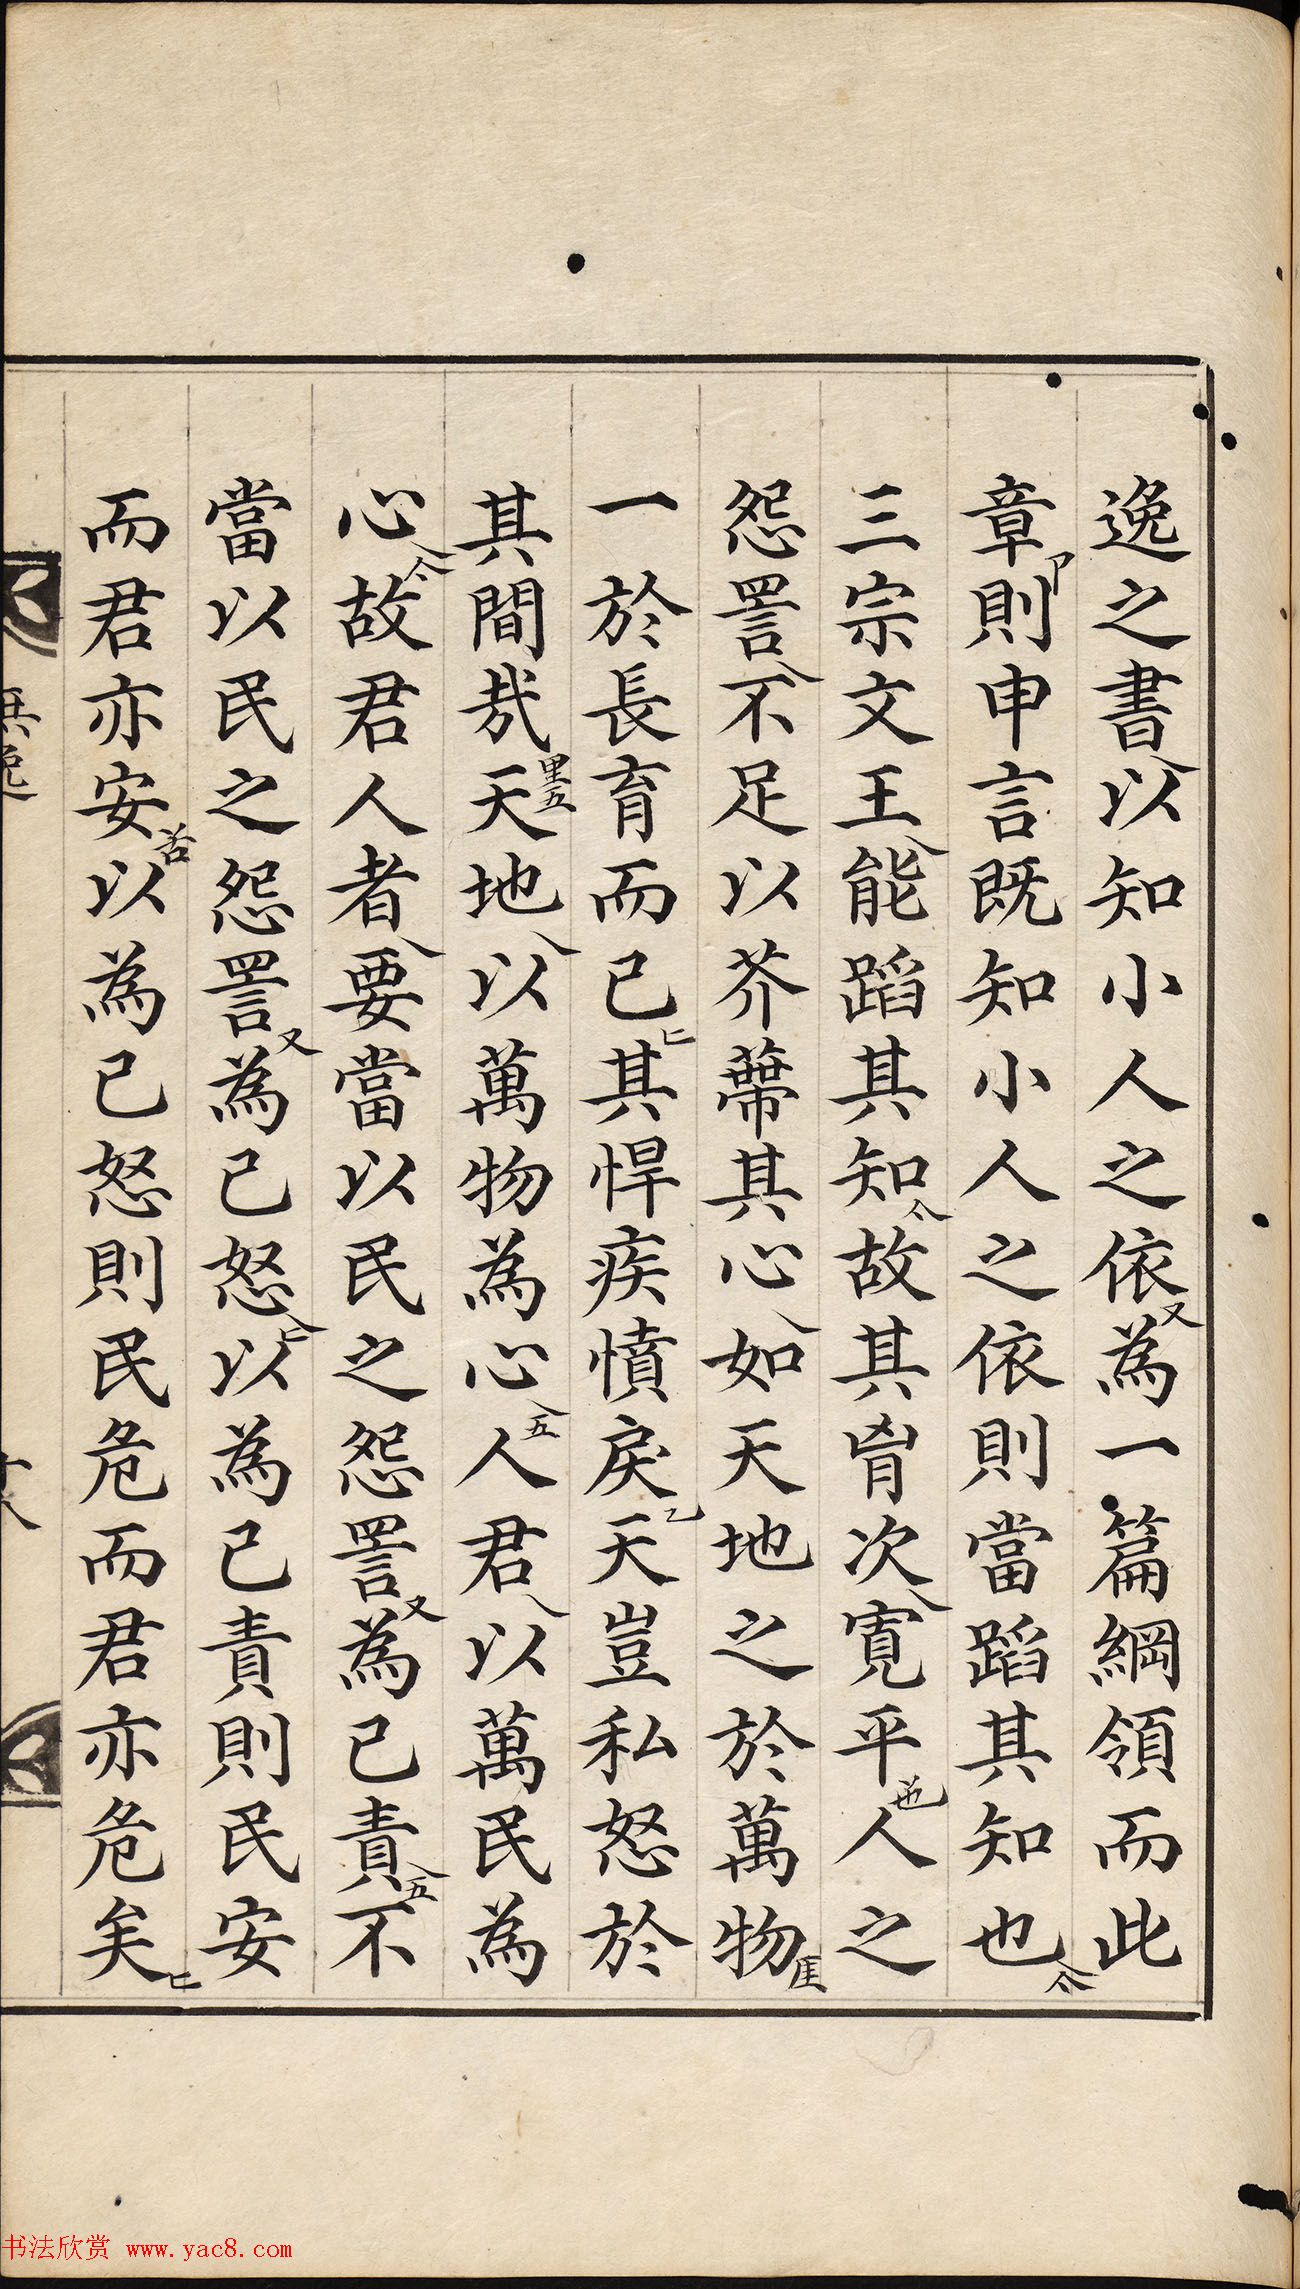 逸之書以知小人之依為一篇綱領而此
章則申言既知小人之依則當蹈其知也
三宗文王能蹈其知故其胷次寬平人之
怨詈不足以芥蔕其心如天地之於萬物
一於長育而已其悍疾憤戾天豈私怒於
其間哉天地以萬物為心人君以萬民為
心故君人者要當以民之怨詈為己責不
當以民之怨詈為己怒以為己責則民安
而君亦安以為己怒則民危而君亦危矣
书法欣赏 www.yac8.com